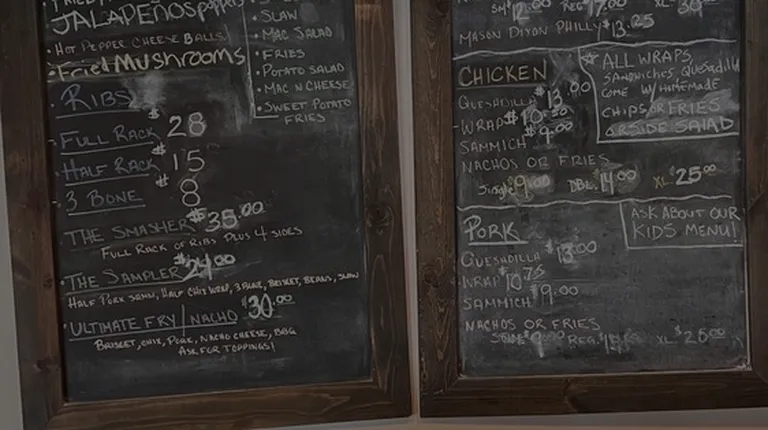 JALAPEÑOS
• HOT PEPPER CHEESE BALLS
• FRIED MUSHROOMS
• SLAW
• MAC SALAD
• FRIES
• POTATO SALAD
• MAC N CHEESE
• SWEET POTATO
FRIES
• RIBS
- FULL RACK $28
- HALF RACK $15
- 3 BONE $8
• THE SMASHER $35.00
FULL RACK OF RIBS PLUS 4 SIDES
• THE SAMPLER $24.00
HALF PORK SAMM, HALF CHIX WRAP, 3 BONE, BRISKET, BEANS, SLAW
• ULTIMATE FRY/NACHO $30.00
BRISKET, CHIX, PORK, NACHO CHEESE, BBQ
ASK FOR TOPPINGS!
SM $12.00 REG $17.00 XL-30
MASON DIXON PHILLY $13.25
CHICKEN
QUESADILLA $13.00
- WRAP $10.50
SAMMICH $9.00
NACHOS OR FRIES
Single $9.00 DBL. $14.00 XL $25.00
ALL WRAPS,
SANDWICHES, QUESADILLA
COME W/ HOMEMADE
CHIPS OR FRIES
OR SIDE SALAD
PORK
QUESADILLA $13.00
WRAP $10.75
SAMMICH $9.00
NACHOS OR FRIES
REG. XL $25.00
ASK ABOUT OUR
KIDS MENU!